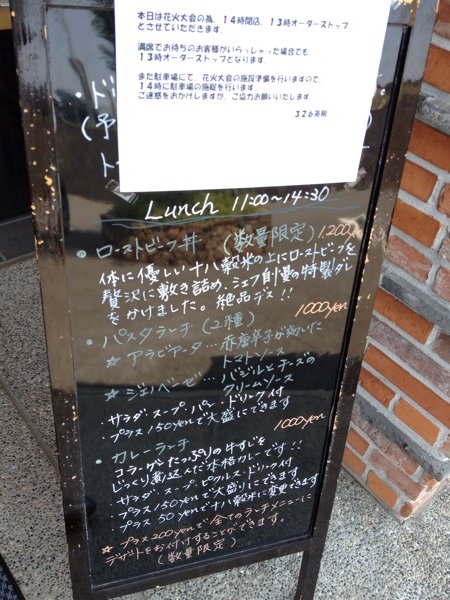 本日は花火大会の為、14時閉店、13時オーダーストップ
とさせていただきます
満席でお待ちのお客様がいらっしゃった場合でも
13時オーダーストップとなります。
また駐車場にて、花火大会の施設準備を行いますので、
14時に駐車場の施錠を行います
ご迷惑をおかけしますが、ご協力お願いいたします
326茶房
Lunch 11:00〜14:30
・ローストビーフ丼 (数量限定) 1200yen
体に優しい十八穀米の上にローストビーフを
贅沢に敷き詰め、シェフ自慢の特製ダレ
をかけました。絶品デス!!
・パスタランチ (2種) 1000yen
☆ アラビアータ…赤唐辛子が効いた
トマトソース
☆ ジェノベーゼ…バジルとチーズの
クリームソース
・サラダ・スープ・パン・ドリンク付
・プラス150yenで大盛にできます
・カレーランチ 1000yen
コラーゲンたっぷりの牛すじを
じっくり煮込んだ本格カレーです!!
・サラダ・スープ・ピクルス・ドリンク付
・プラス150yenで大盛りにできます
・プラス50yenで十八穀米に変更できます
☆プラス200yenで全てのランチメニューに
デザートをお付けすることができます。
(数量限定)